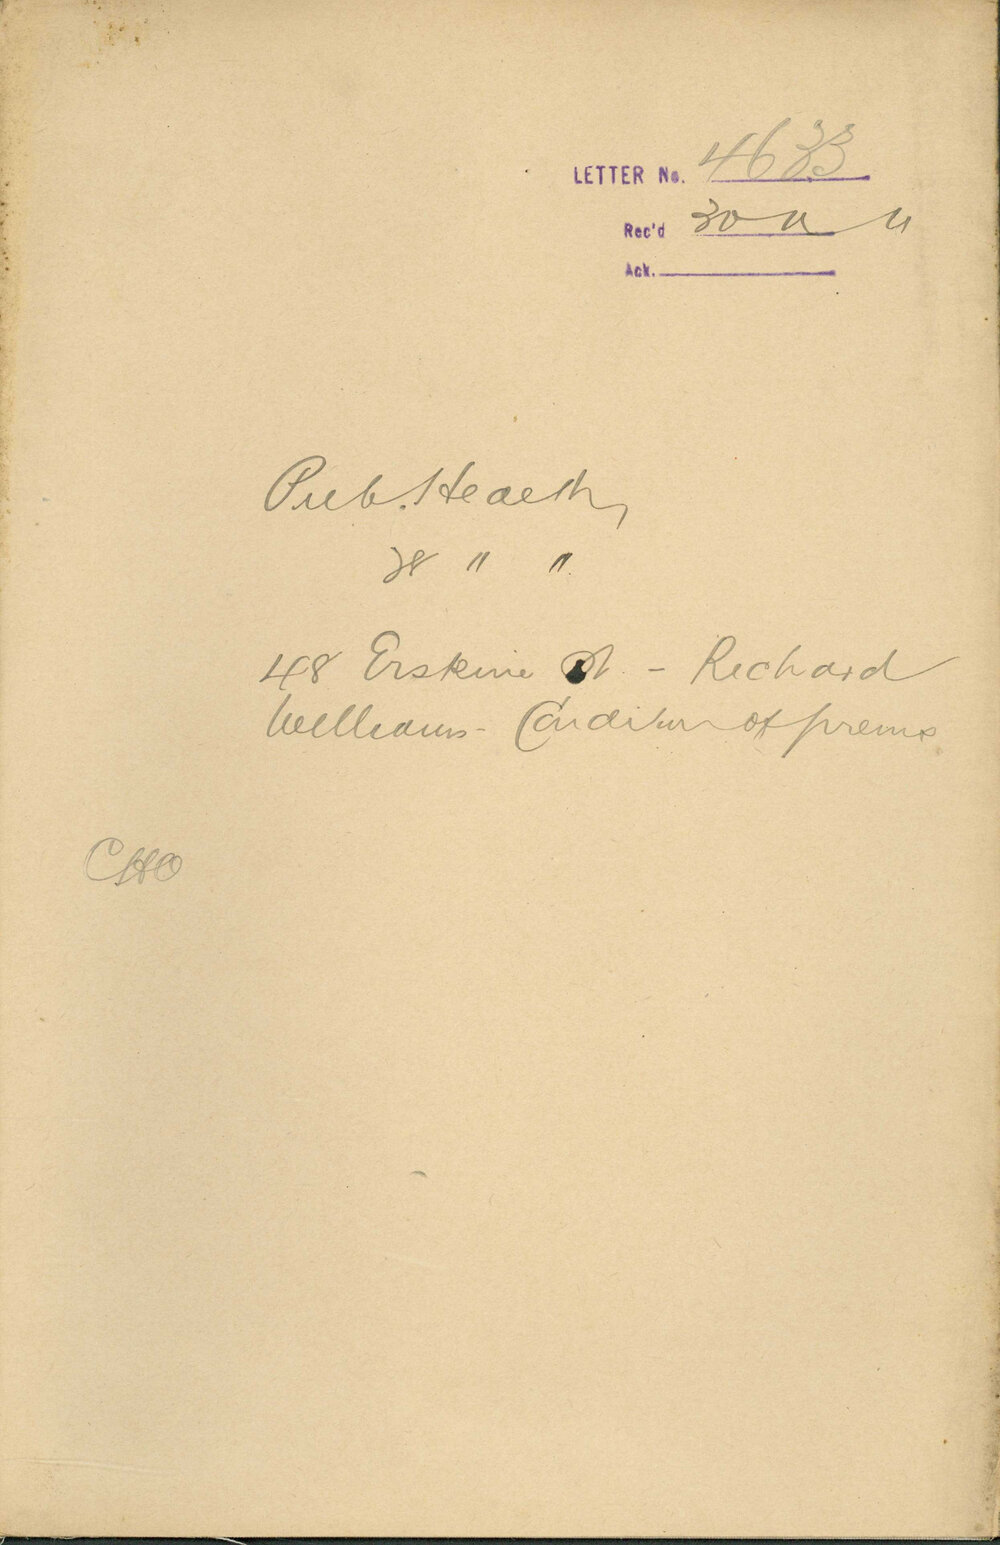 LETTER No. 4633
Rec'd 30
Ack.
Pub. Health,
28 " "
48 Erskine St - Richard
Williams - Condition of prems
CHO